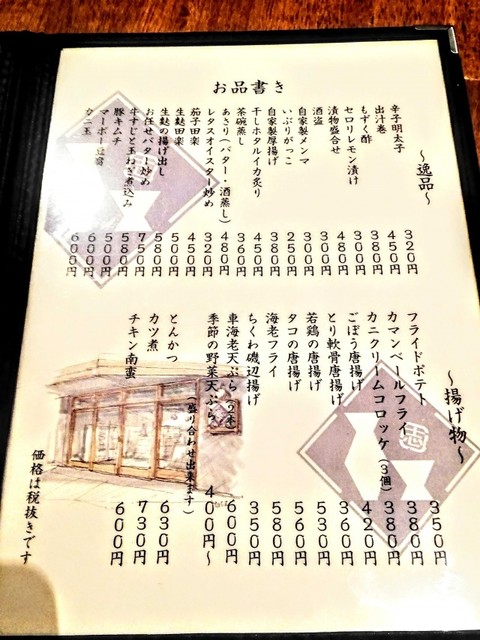 お品書き
～逸品～
辛子明太子 320円
出汁巻 450円
もずく酢 380円
セロリレモン漬け 300円
漬物盛合せ 480円
酒盗 300円
自家製メンマ 300円
いぶりがっこ 250円
自家製厚揚げ 380円
干しホタルイカ炙り 450円
茶碗蒸し 360円
あさり(バター・酒蒸し) 480円
レタスオイスター炒め 320円
茄子田楽 455円
生麩田楽 500円
生麩の揚げ出し 580円
お任せバター炒め 750円
牛すじと玉ねぎ煮込み 580円
豚キムチ 580円
マーボー豆腐 600円
カニ玉 600円
～揚げ物～
フライドポテト 350円
カマンベールフライ 380円
カニクリームコロッケ(3個) 380円
ごぼう唐揚げ 420円
とり軟骨唐揚げ 360円
若鶏の唐揚げ 530円
タコの唐揚げ 560円
海老フライ 580円
ちくわ磯辺揚げ 350円
車海老天ぷら(2本) 600円
季節の野菜天ぷら 400円～
(盛り合わせ出来ます)
とんかつ 630円
カツ煮 730円
チキン南蛮 600円
価格は税抜きです